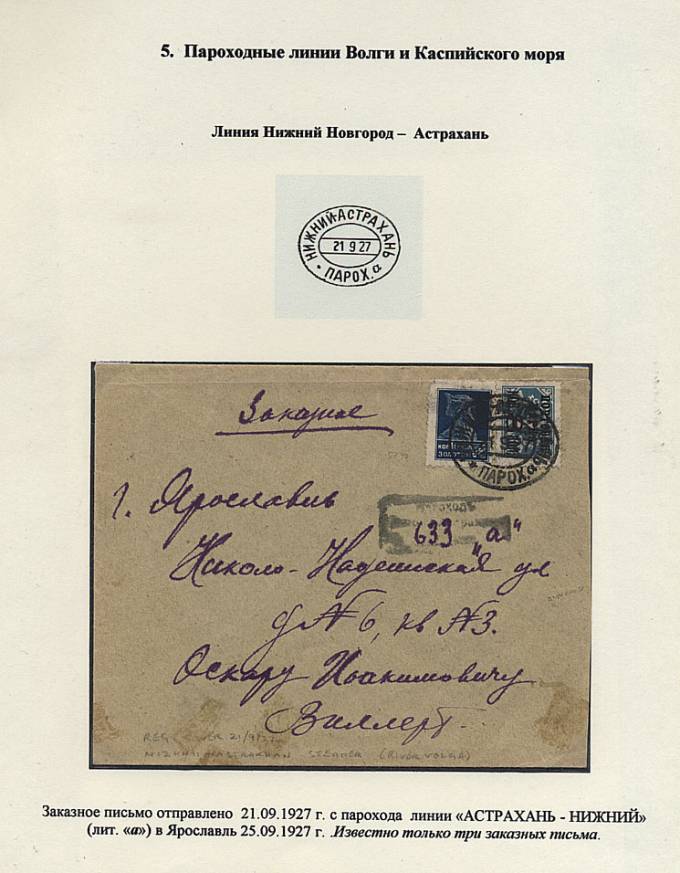 5. Пароходные линии Волги и Каспийского моря
Линия Нижний Новгород – Астрахань
НИЖНИЙ-АСТРАХАНЬ
21 9 27
ПАРОХ. а
Заказное
ЗОЛОТОМ
ПАРОХ. а
г. Ярославль
633 "а"
Николо-Надеинская ул
д № 6, кв № 3.
Оскару Иоакимовичу
Виллерт.
REG COVER 21/9/27
NIZHNII-ASTRAKHAN STEAMER (RIVER VOLGA)
Заказное письмо отправлено 21.09.1927 г. с парохода линии «АСТРАХАНЬ - НИЖНИЙ»
(лит. «а») в Ярославль 25.09.1927 г. .Известно только три заказных письма.